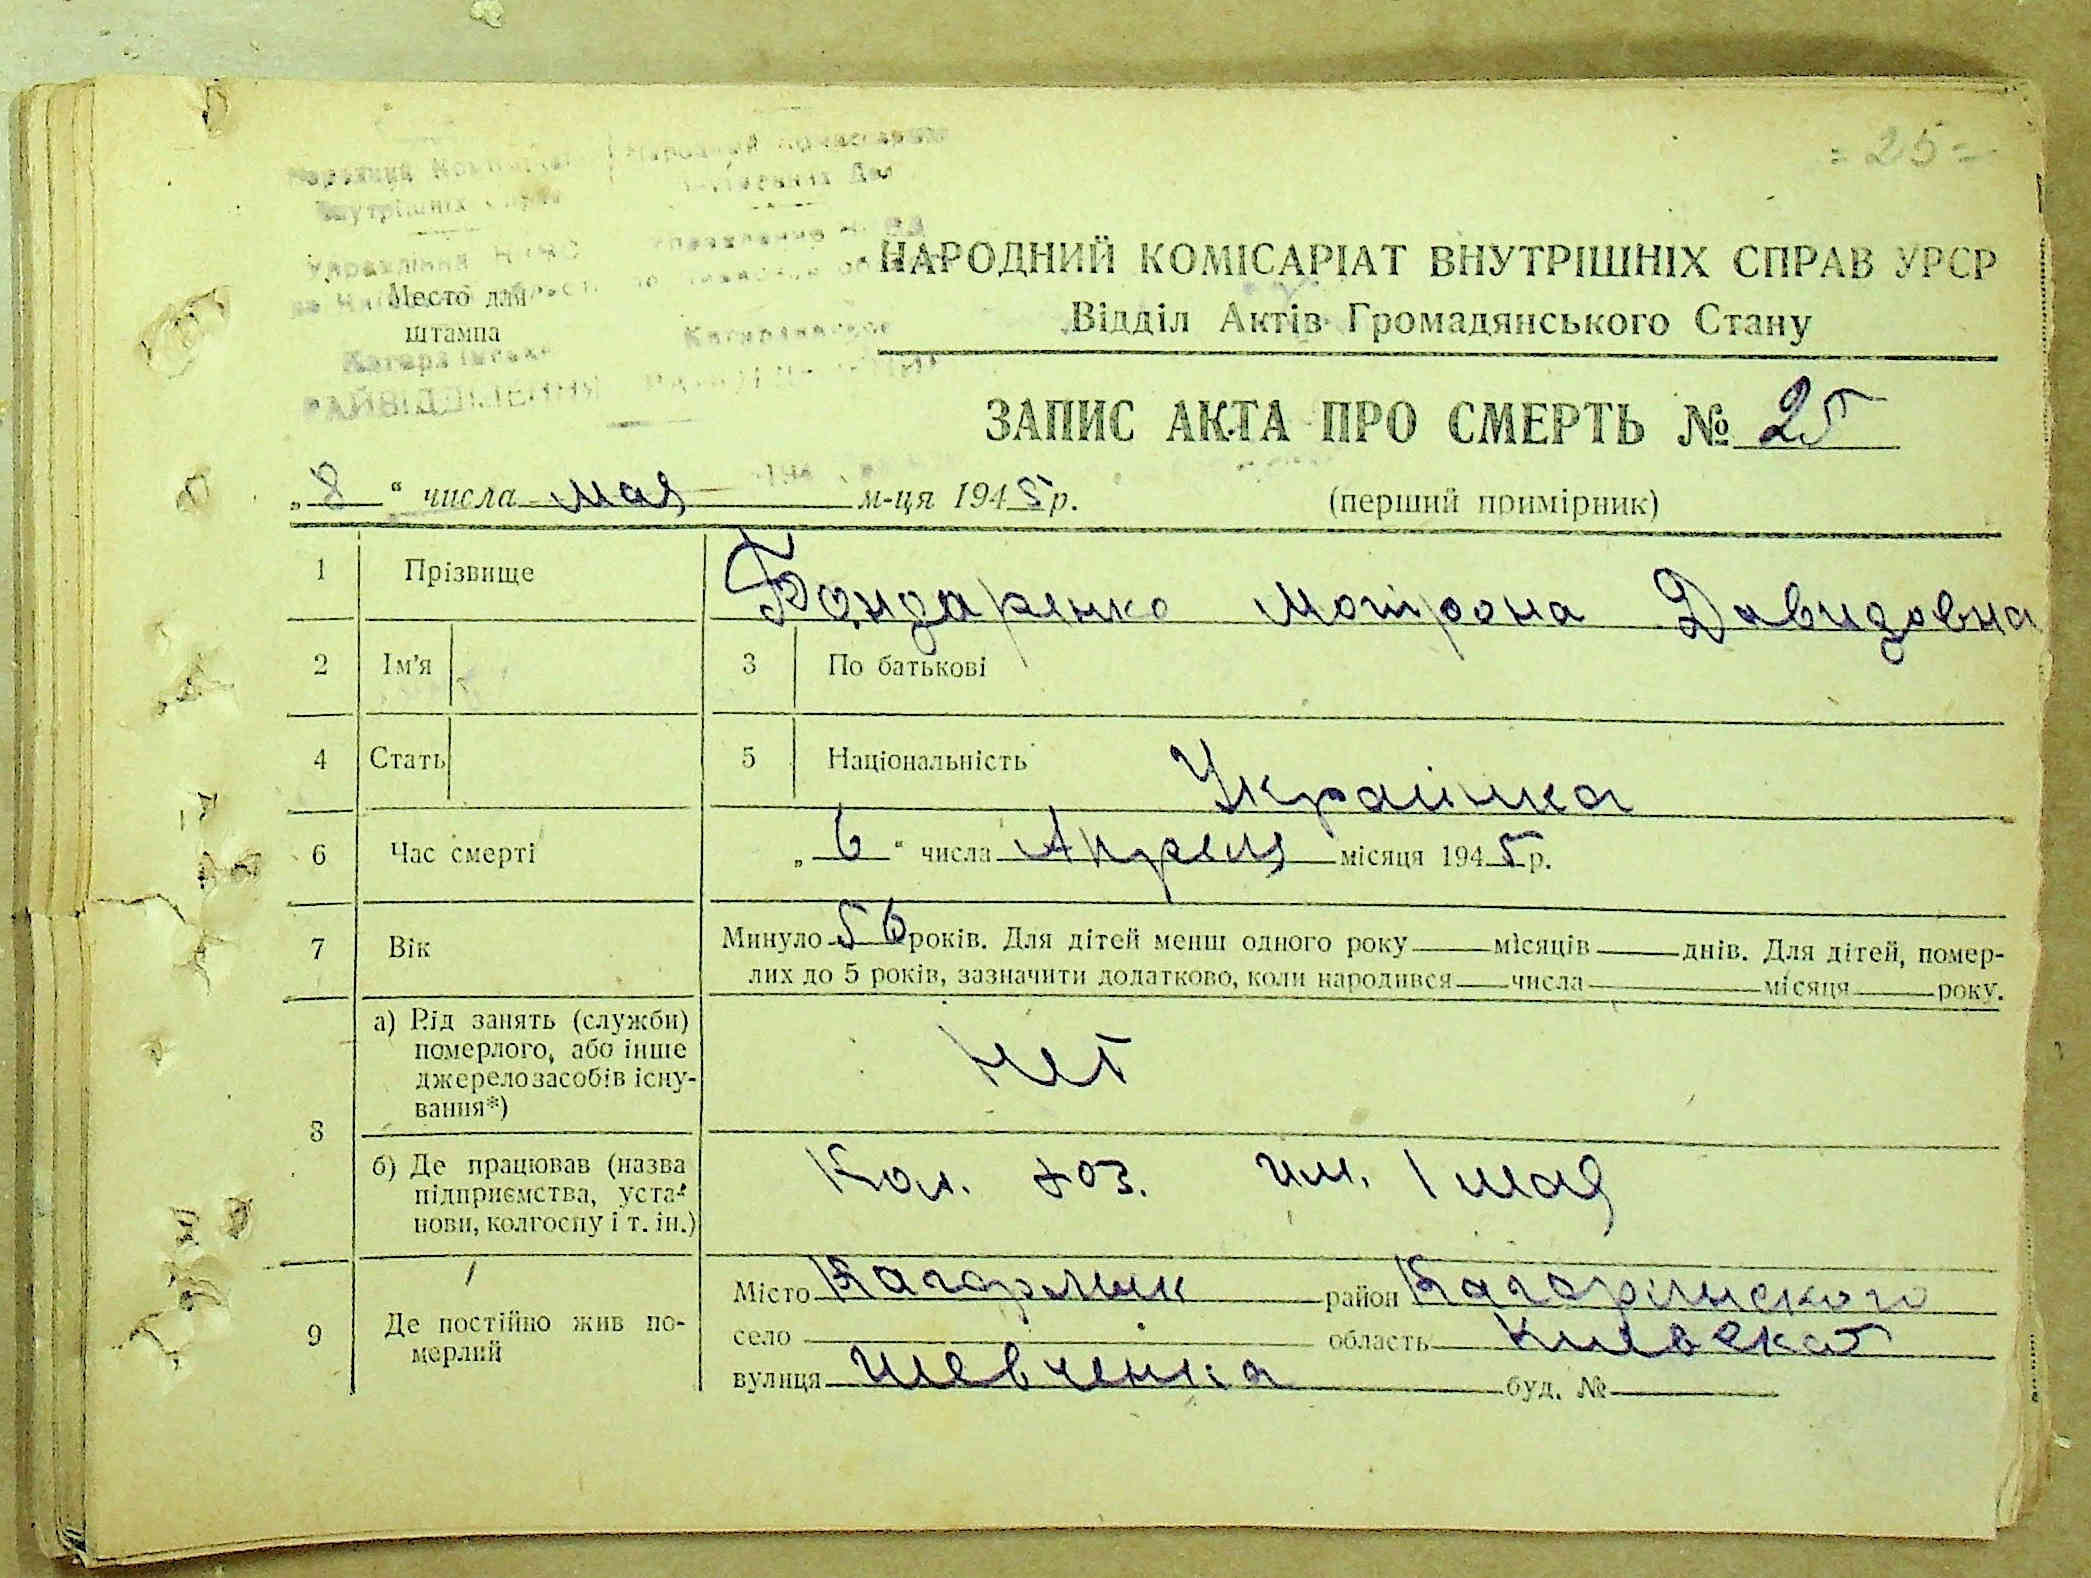 = 25 =
Народний Комісаріат
Внутрішніх Справ
Управління НКВС
Место для
штампа
РАЙВІДДІЛЕННЯ
НАРОДНИЙ КОМІСАРІАТ ВНУТРІШНІХ СПРАВ УРСР
Відділ Актів Громадянського Стану
ЗАПИС АКТА ПРО СМЕРТЬ № 25
„ 8 “ числа мая м-ця 1945 р. (перший примірник)
1 Прізвище Бондаренко Мотрона Давидовна
2 Ім'я 3 По батькові
4 Стать 5 Національність Украинка
6 Час смерті „ 6 “ числа Апреля місяця 1945 р.
7 Вік Минуло 56 років. Для дітей менш одного року місяців днів. Для дітей, помер-
лих до 5 років, зазначити додатково, коли народився числа місяця року.
8 а) Рід занять (служби)
померлого, або інше
джерело засобів існу-
вання*) нет
б) Де працював (назва
підприємства, уста-
нови, колгоспу і т. ін.) Кол. хоз. им. 1 мая
9 Де постійно жив по-
мерлий
Місто Кагарлик район Кагарлыского
село область Киевская
вулиця Шевченка буд. №